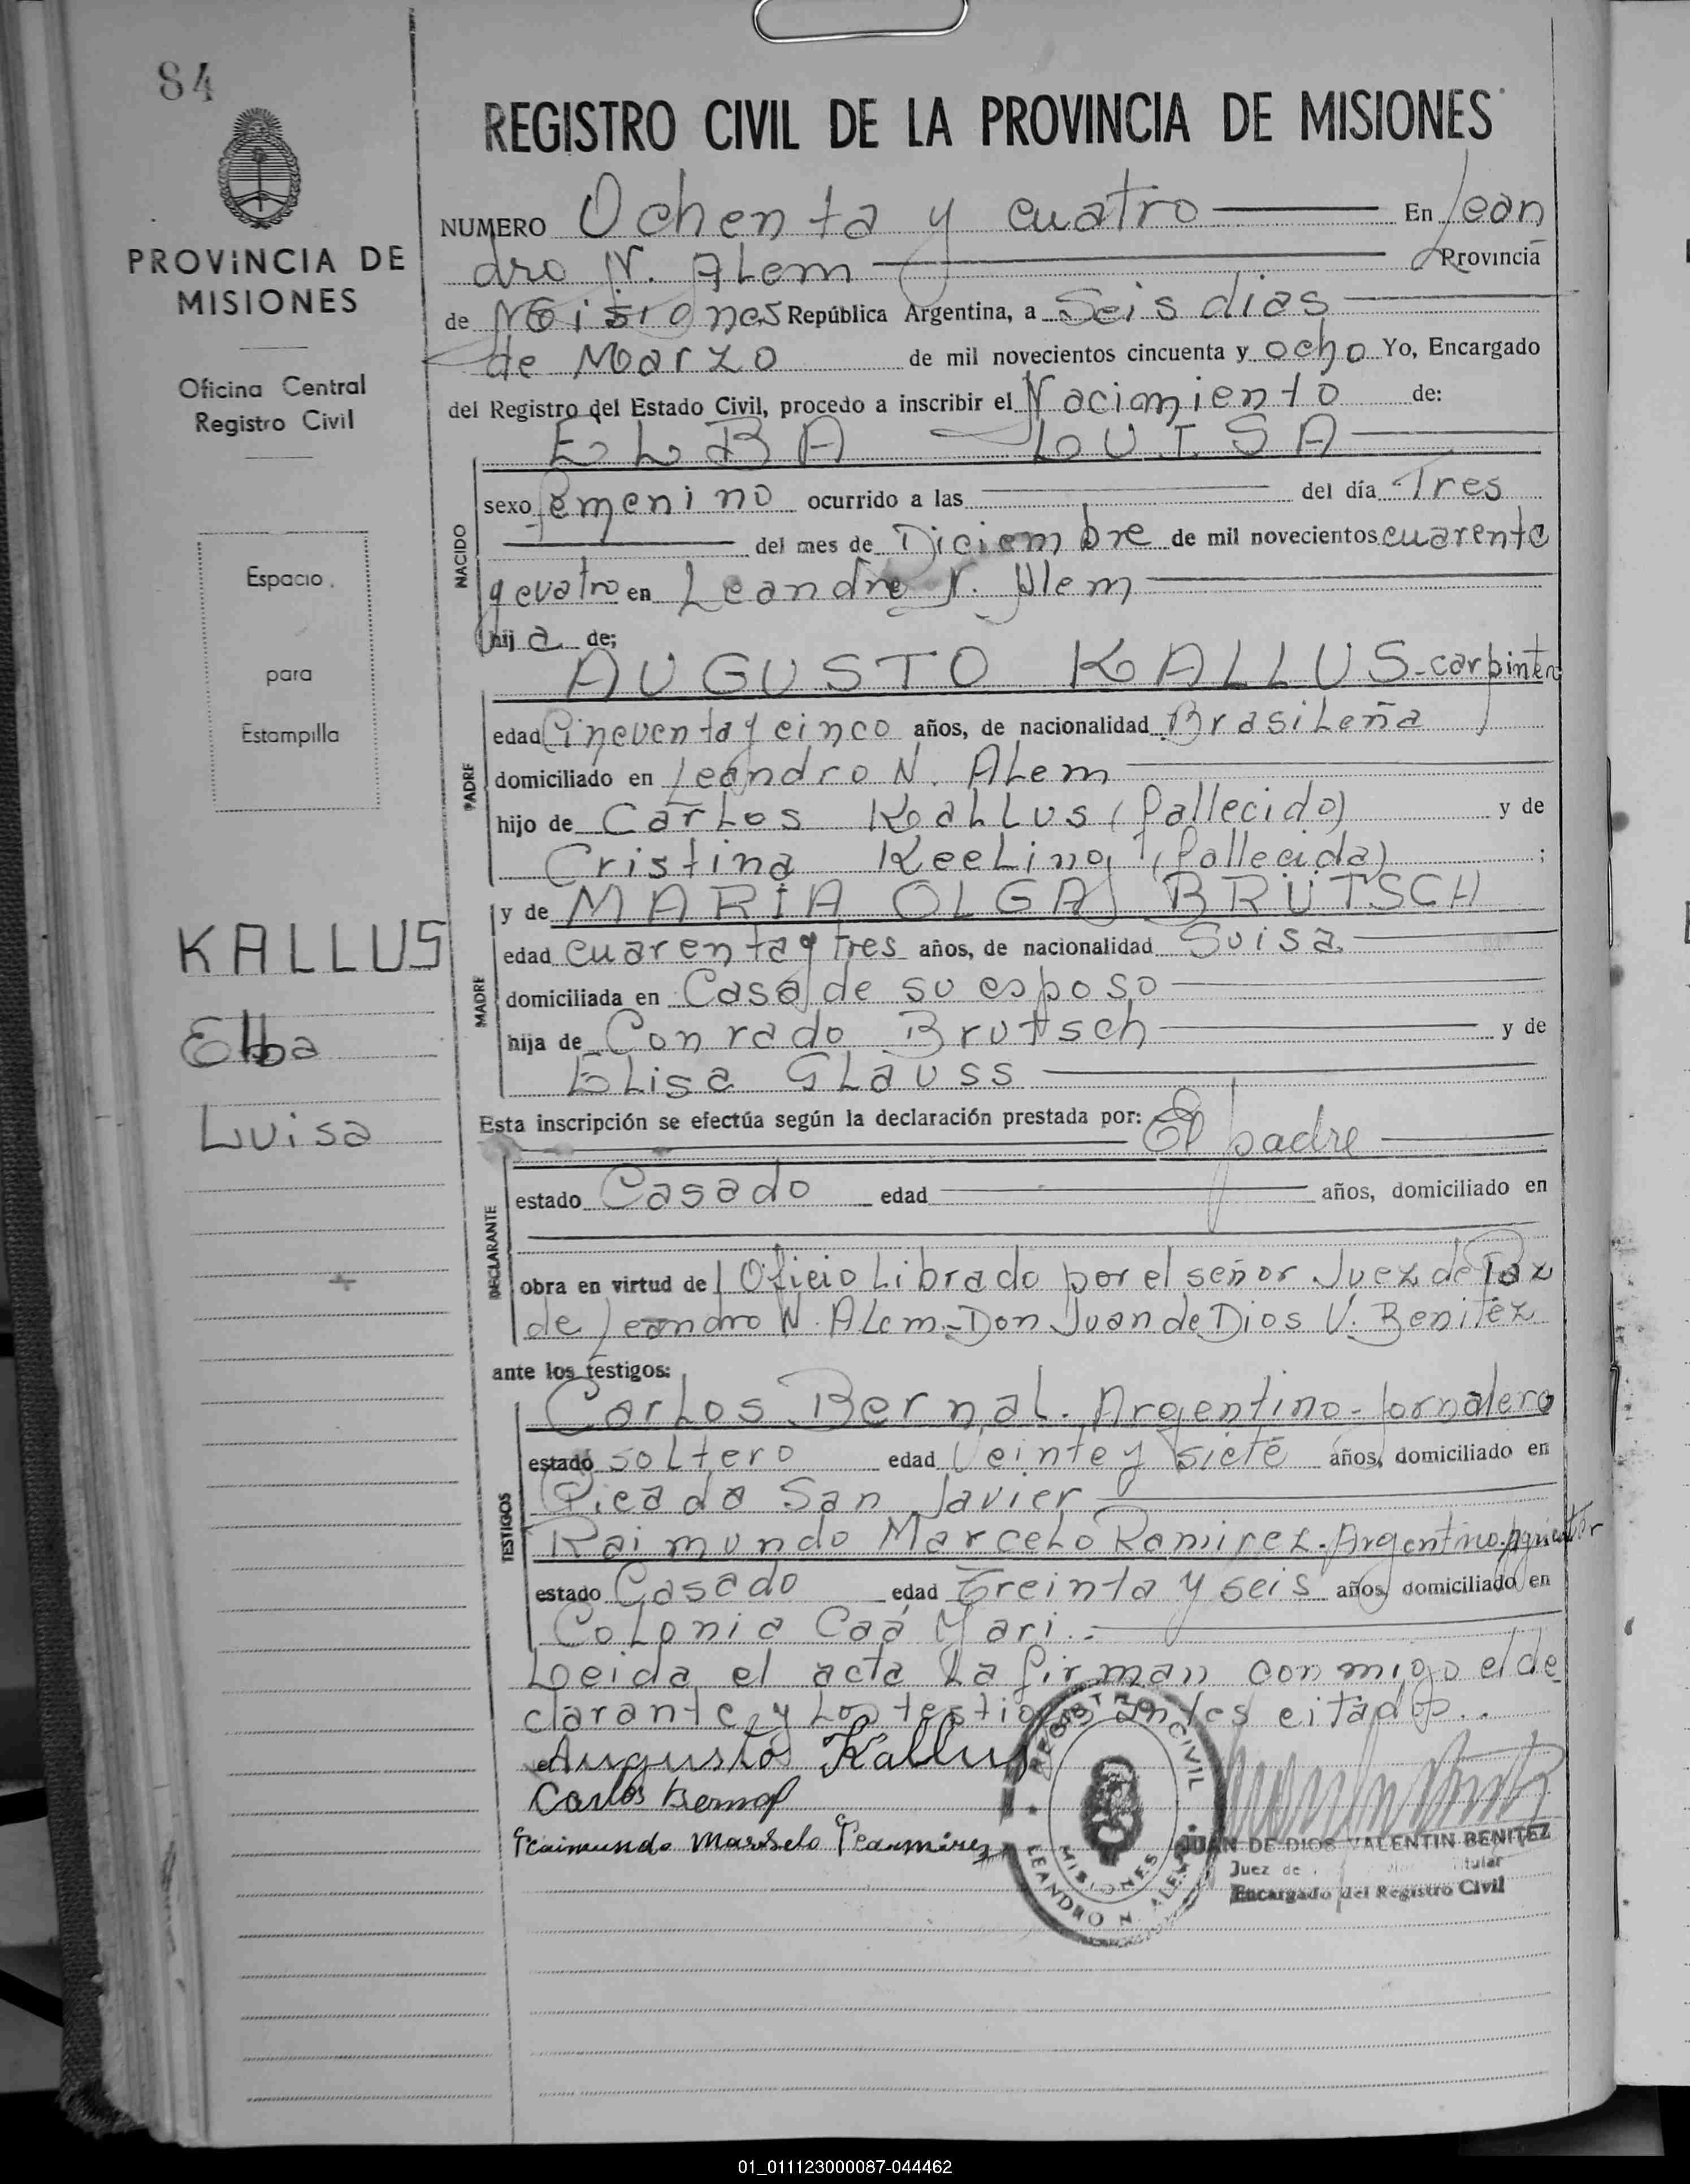 84
PROVINCIA DE
MISIONES
Oficina Central
Registro Civil
Espacio
para
Estampilla
KALLUS
Elba
Luisa
REGISTRO CIVIL DE LA PROVINCIA DE MISIONES
NUMERO Ochenta y cuatro En Lean
dro N. Alem Provincia
de Misiones República Argentina, a Seis dias
de Marzo de mil novecientos cincuenta y ocho Yo, Encargado
del Registro del Estado Civil, procedo a inscribir el Nacimiento de:
ELBA LUISA
NACIDO
sexo femenino ocurrido a las del día Tres
del mes de Diciembre de mil novecientos cuarenta
y cuatro en Leandro N. Alem
hija de;
PADRE
AUGUSTO KALLUS-carpintero
edad Cincuenta y cinco años, de nacionalidad Brasileña
domiciliado en Leandro N. Alem
hijo de Carlos Kallus (fallecido) y de
Cristina Keeling (fallecida) ;
MADRE
y de MARIA OLGA BRUTSCH
edad cuarenta y tres años, de nacionalidad Suisa
domiciliada en Casa de su esposo
hija de Conrado Brutsch y de
Elisa Glauss
Esta inscripción se efectúa según la declaración prestada por: El padre
DECLARANTE
estado Casado edad años, domiciliado en
obra en virtud de Oficio Librado por el señor Juez de Paz
de Leandro N. Alem-Don Juan de Dios V. Benitez
ante los testigos:
TESTIGOS
Carlos Bernal. Argentino-Jornalero
estado soltero edad Veinte y siete años, domiciliado en
Picada San Javier
Raimundo Marcelo Ramirez. Argentino.
estado Casado edad Treinta y seis años, domiciliado en
Colonia Caá Yari.-
Leida el acta la firman conmigo el de
clarante y los testigos antes citados..
Augusto Kallus
Carlos Bernal
Raimundo Marselo Rarmirez
REGISTRO CIVIL
MISIONES
LEANDRO N. ALEM
JUAN DE DIOS VALENTIN BENITEZ
Juez de Titular
Encargado del Registro Civil
01_011123000087-044462